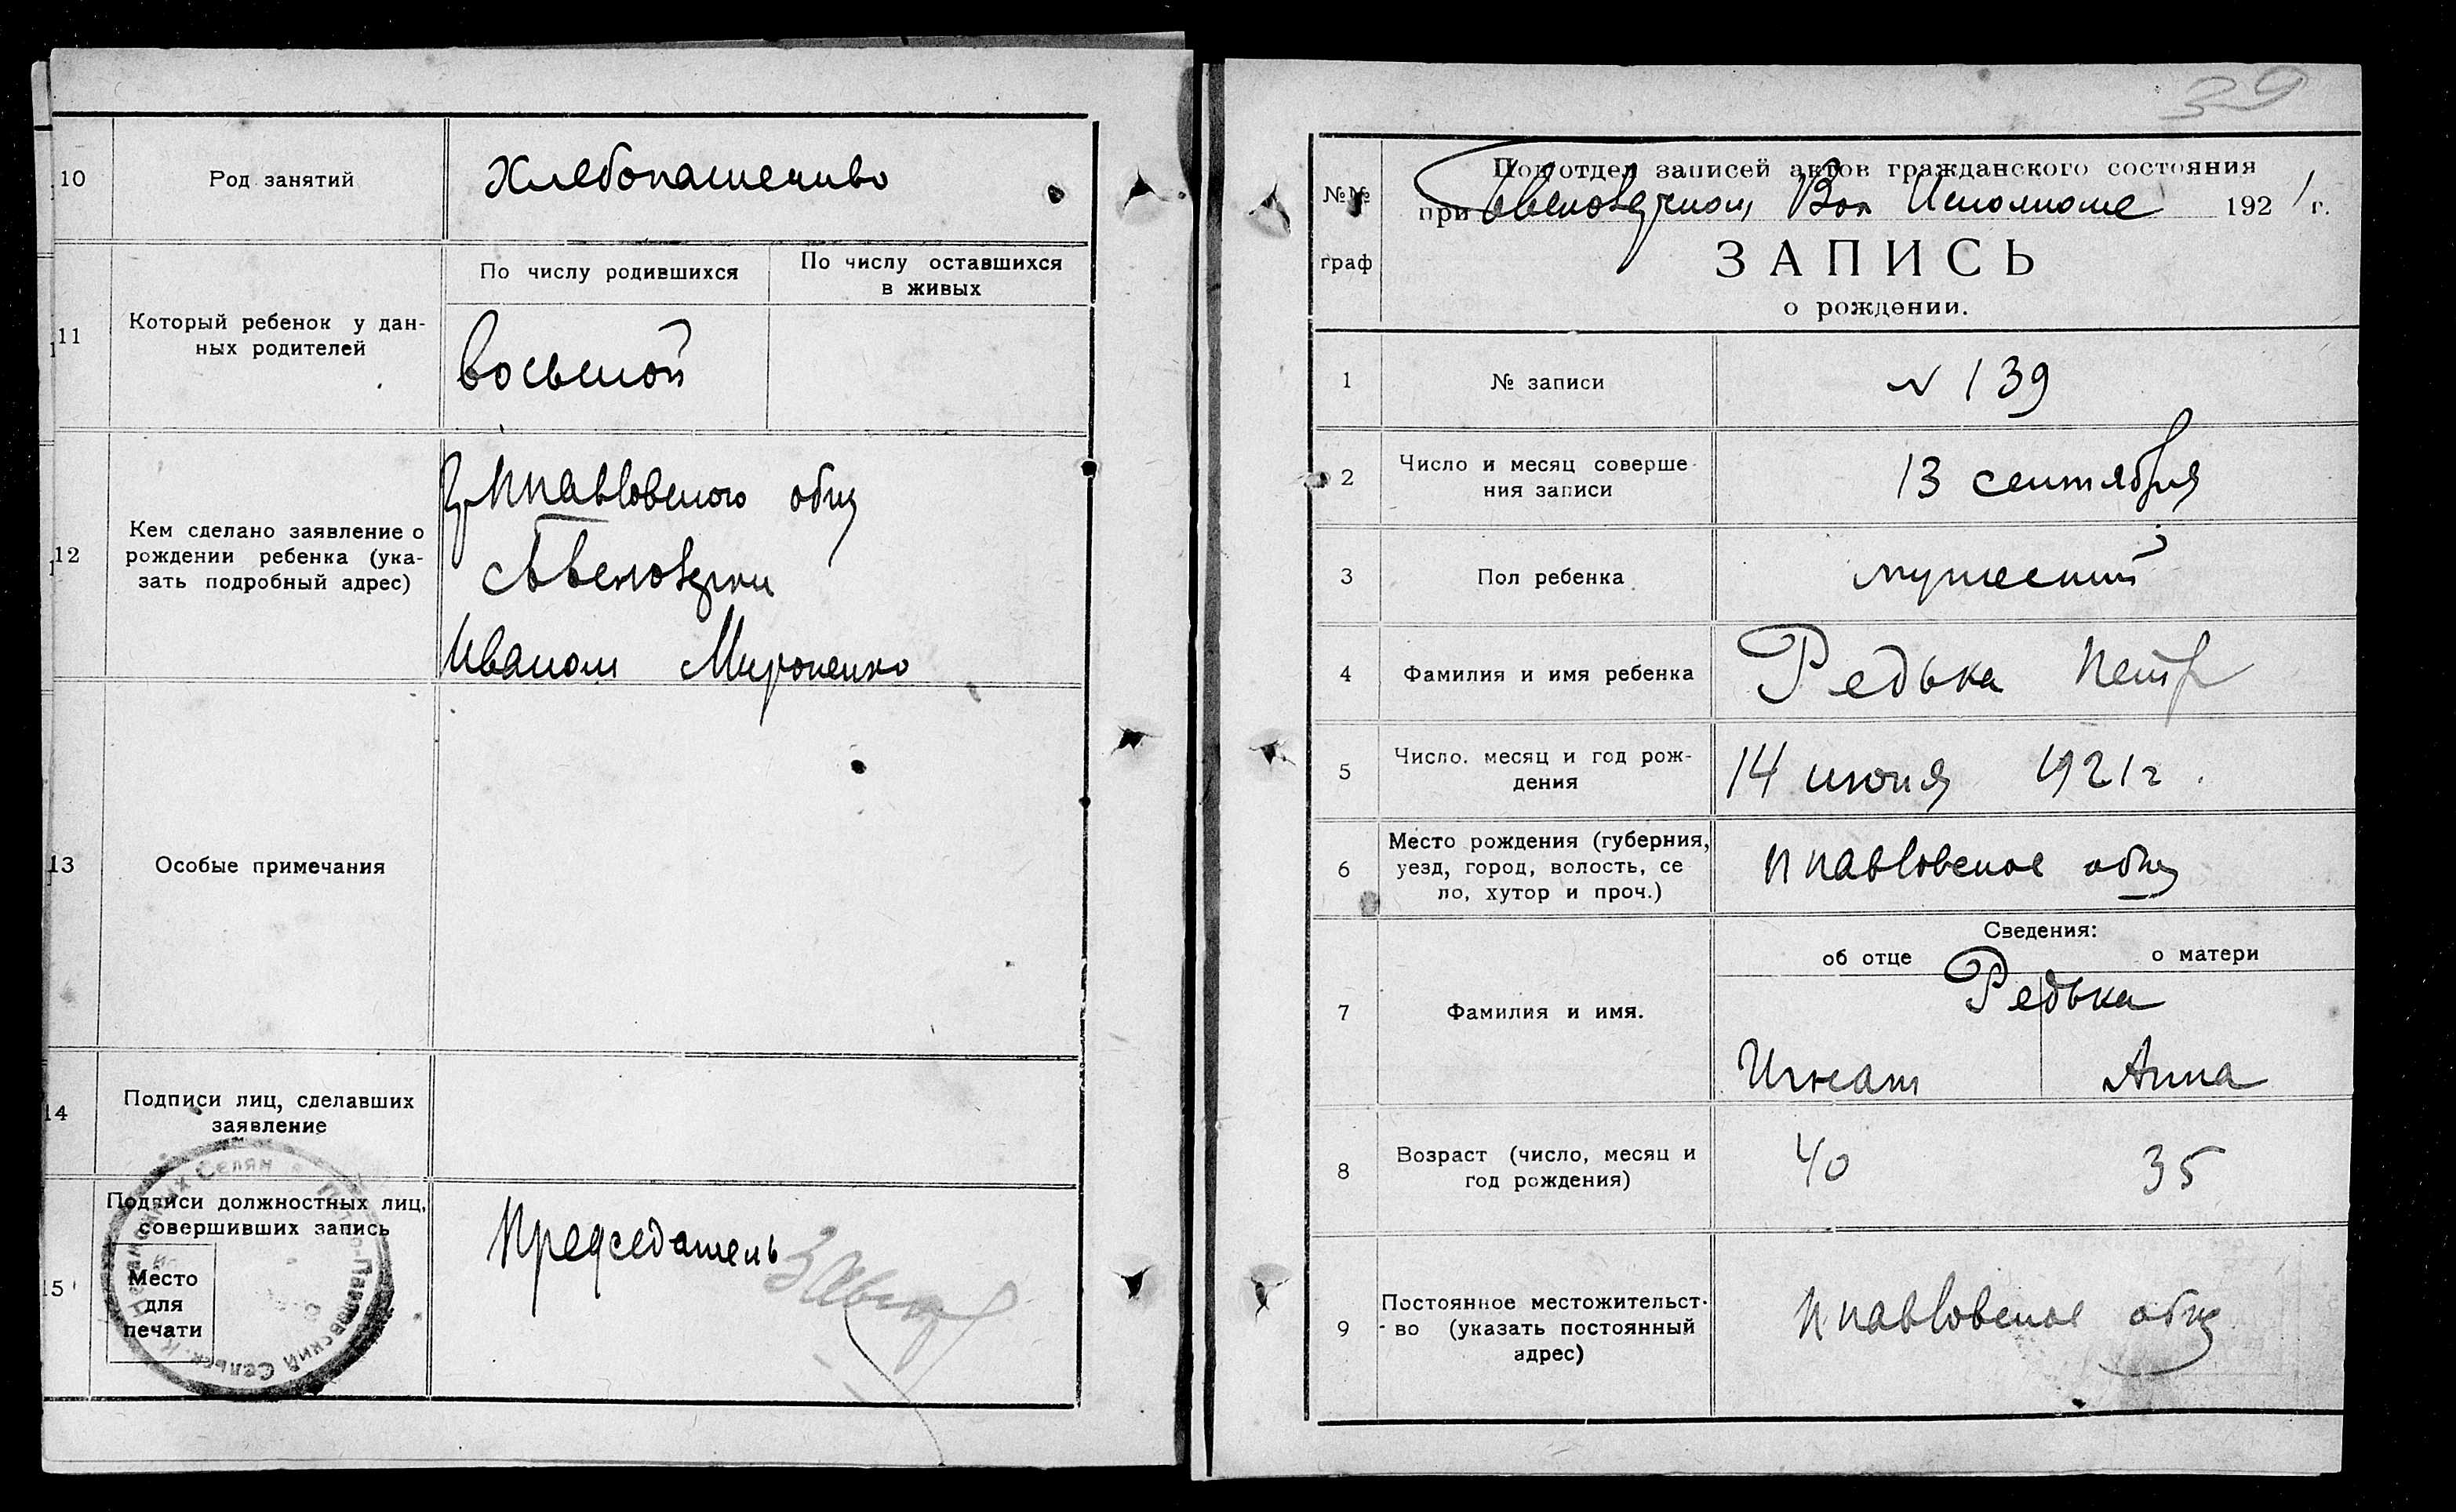 10
Род занятий
Хлебопашество
11
Который ребенок у дан-
ных родителей
По числу родившихся
По числу оставшихся
в живых
восьмой
12
Кем сделано заявление о
рождении ребенка (ука-
зать подробный адрес)
Ппавловского общ
Иваном Мироненко
13
Особые примечания
14
Подписи лиц, сделавших
заявление
15
Подписи должностных лиц,
совершивших запись
Место
для
печати
Председатель
39
№№
граф
Подотдел записей актов гражданского состояния
при Вол Исполкоме 1921 г.
ЗАПИСЬ
о рождении.
1
№ записи
N 139
2
Число и месяц соверше-
ния записи
13 сентября
3
Пол ребенка
мужеский
4
Фамилия и имя ребенка
Редька Петр
5
Число. месяц и год рож-
дения
14 июня 1921 г.
6
Место рождения (губерния,
уезд, город, волость, се
ло, хутор и проч.)
Ппавловское общ
Сведения:
об отце
о матери
7
Фамилия и имя.
Редька
Игнат
Анна
8
Возраст (число, месяц и
год рождения)
40
35
9
Постоянное местожительст-
во (указать постоянный
адрес)
Ппавловское общ